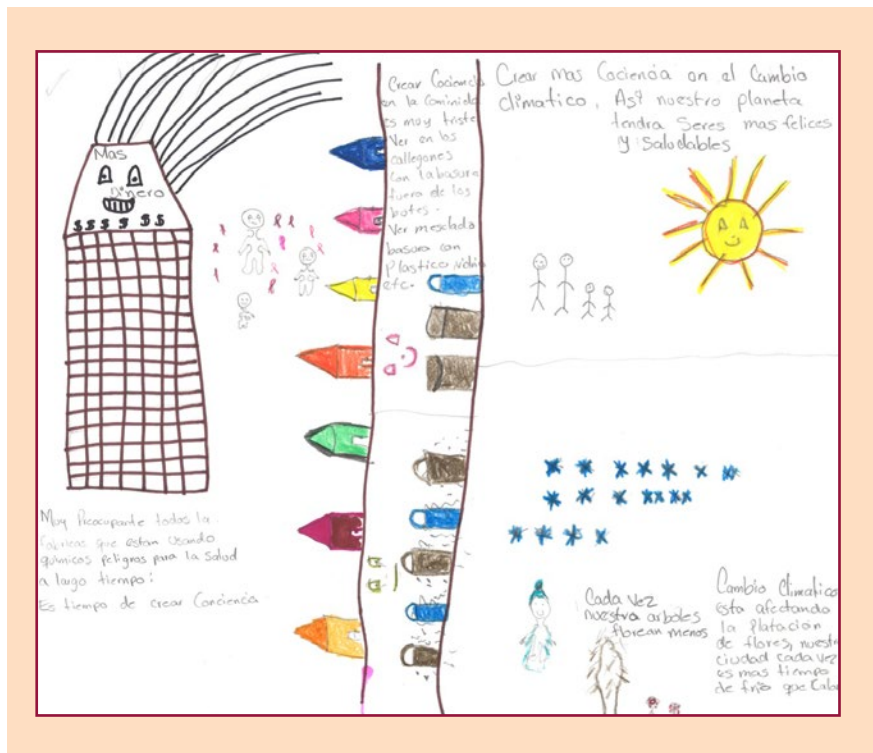 Mas
Dinero
$ $ $ $ $ $
Muy Picocupante todas la
fabricas que estan Usando
quimicos peligros para la Salud
a largo tiempo:
Es tiempo de crear Conciencia
Crear Cociencia
en la Cominida
es muy triste
Ver en los
callegones
con la basura
fuera de los
botes.
Ver mesclada
basura con
Plastico vidrio
etc.
Crear mas Cociencia en el Cambio
climatico. Asi nuestro planeta
tendra Seres mas felices
y Saludables
Cada vez
nuestra arboles
florean menos
Cambio Climatico
esta afectando
la Platación
de flores, nuestr
ciudad cada vez
es mas tiempo
de frio que Calo